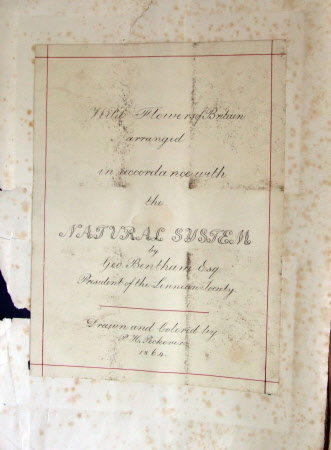 Wild Flowers of Britain
arranged
in accordance with
the
NATURAL SYSTEM
by
Geo Bentham Esq
President of the Linnean Society
Drawn and Colored by
H.
1864.